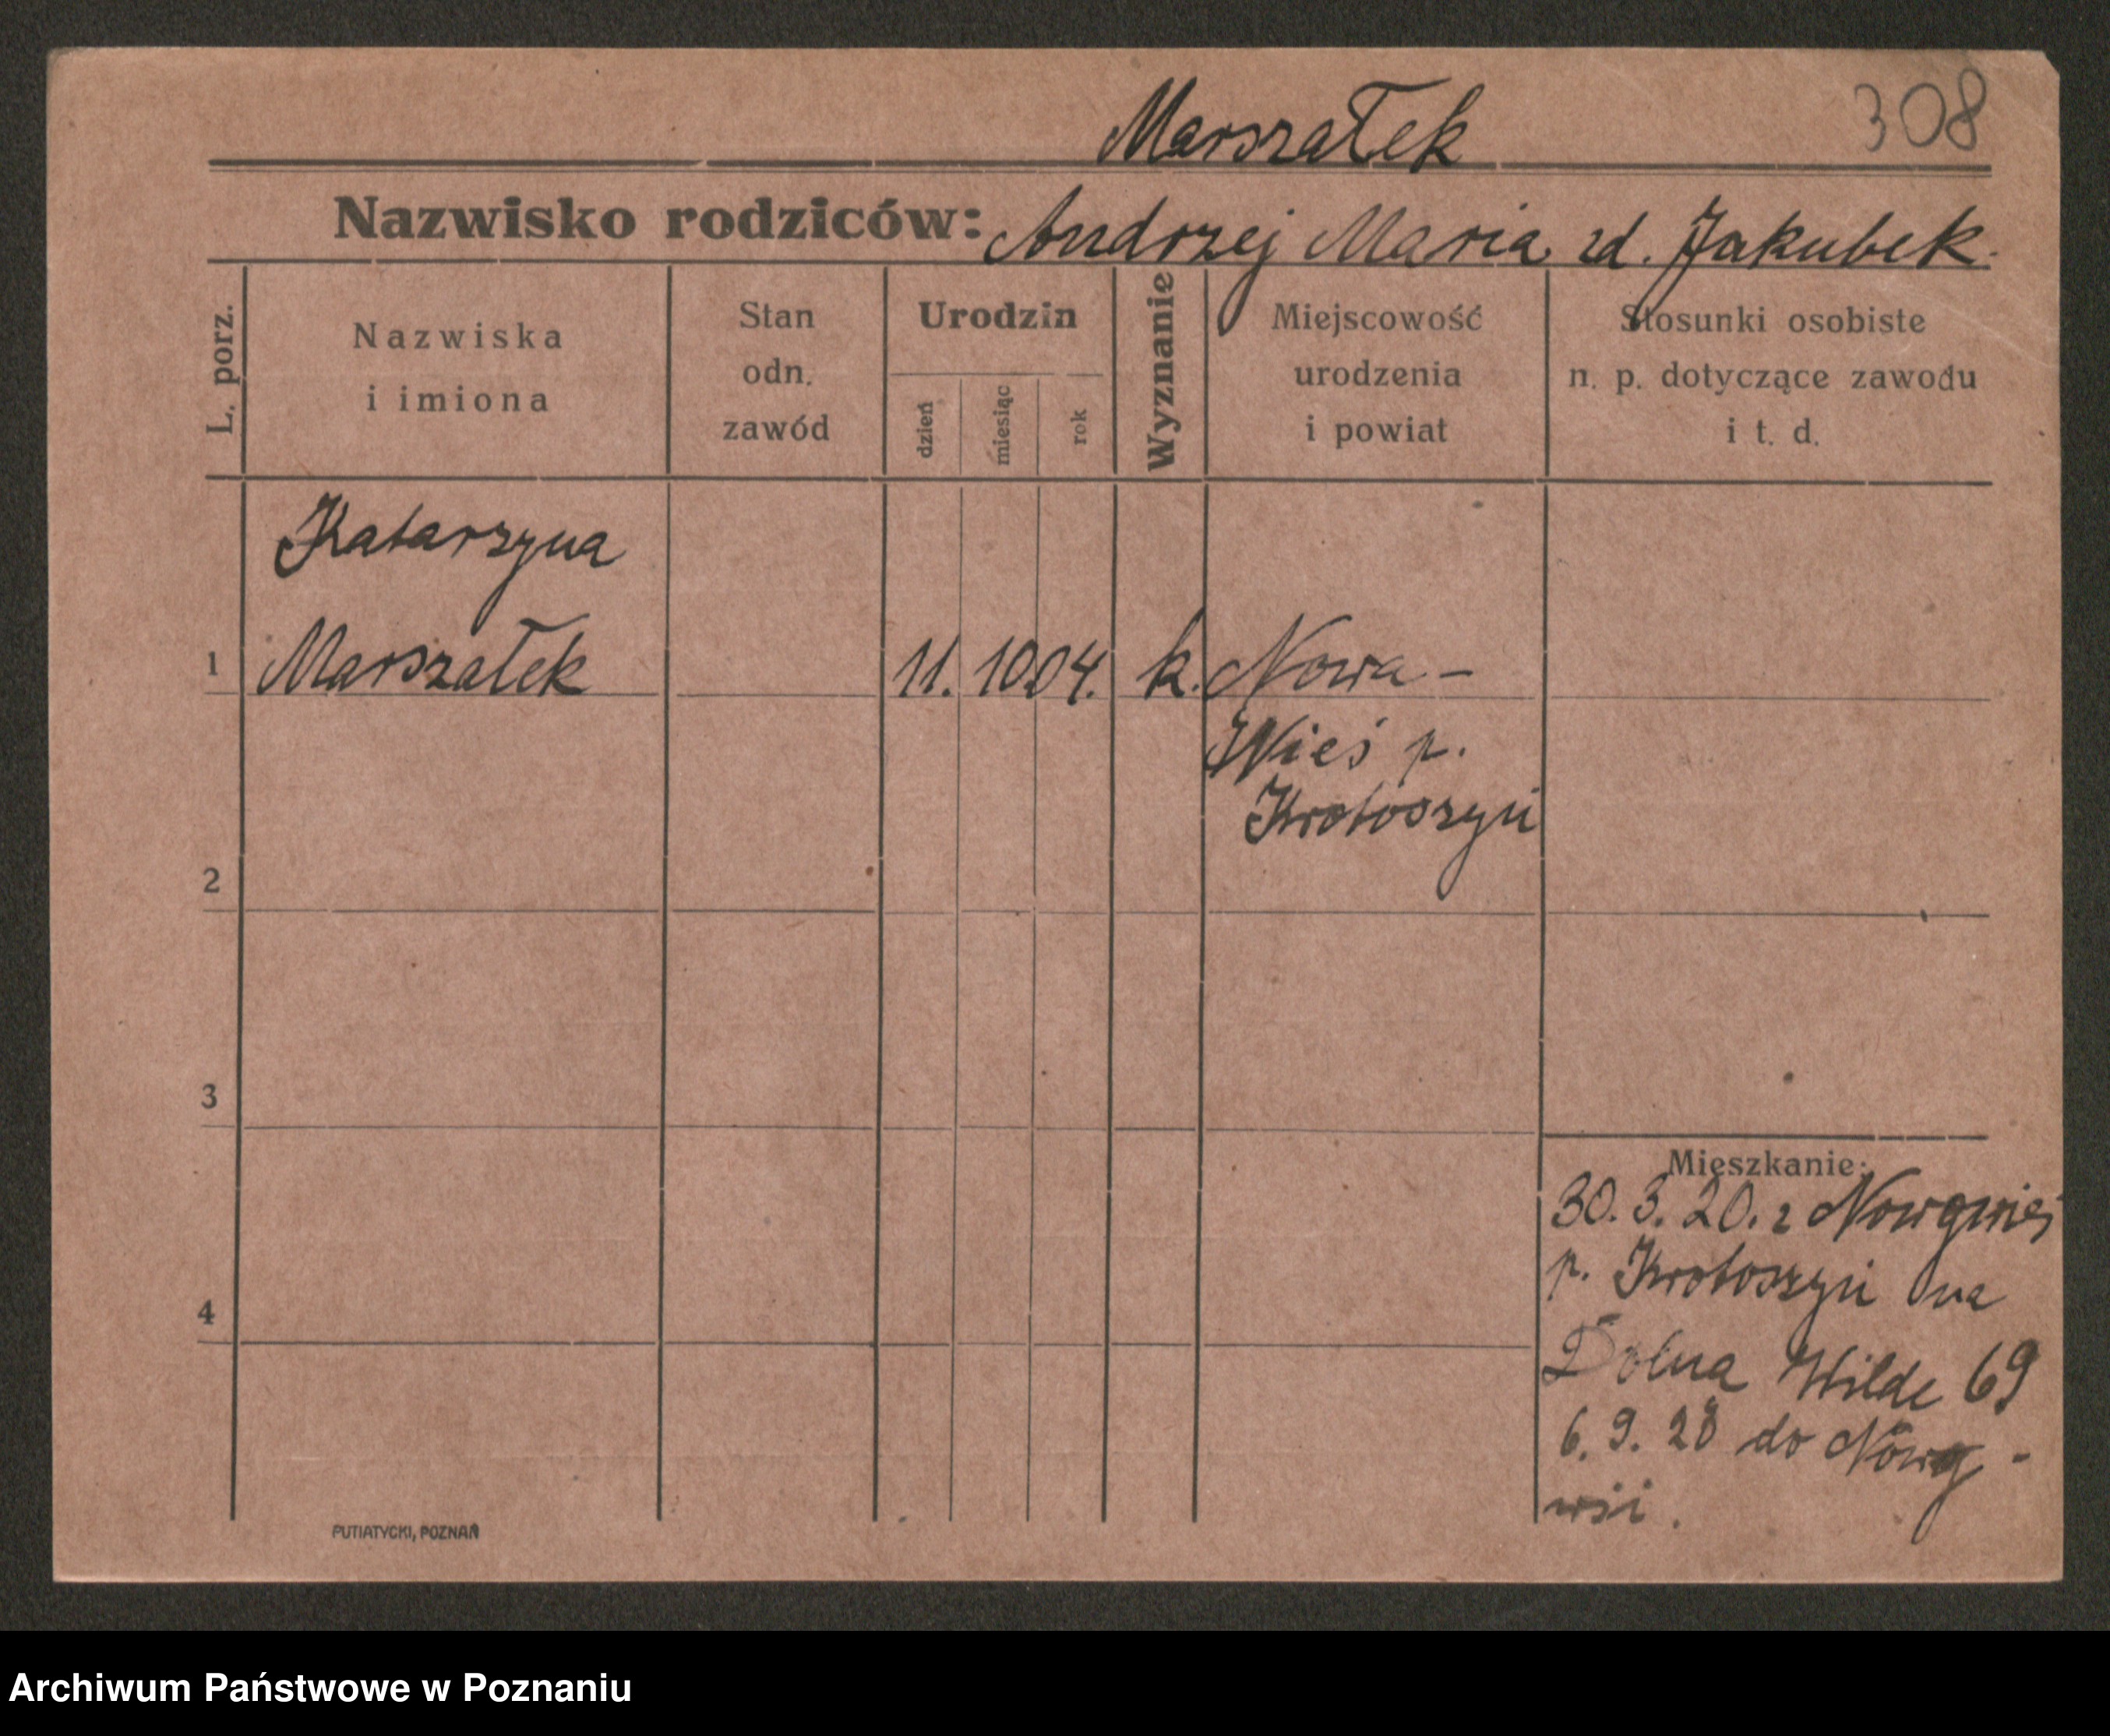 308
Marszałek
Nazwisko rodziców: Andrzej Maria zd. Jakubek.
L. porz.
Nazwiska
i imiona
Stan
odn.
zawód
Urodzin
dzień
miesiąc
rok
Wyznanie
Miejscowość
urodzenia
i powiat
Stosunki osobiste
n. p. dotyczące zawodu
i t. d.
Katarzyna
1 Marszałek 11. 10. 04. k. Nowa-
Wieś p.
Krotoszyń
2
3
4
Mieszkanie:
30. 3. 20. z Nowejwiej
p. Krotoszyń na
Dolna Wilde 69
6. 9. 20 do Nowej-
wsi.
PUTIATYCKI, POZNAŃ
Archiwum Państwowe w Poznaniu